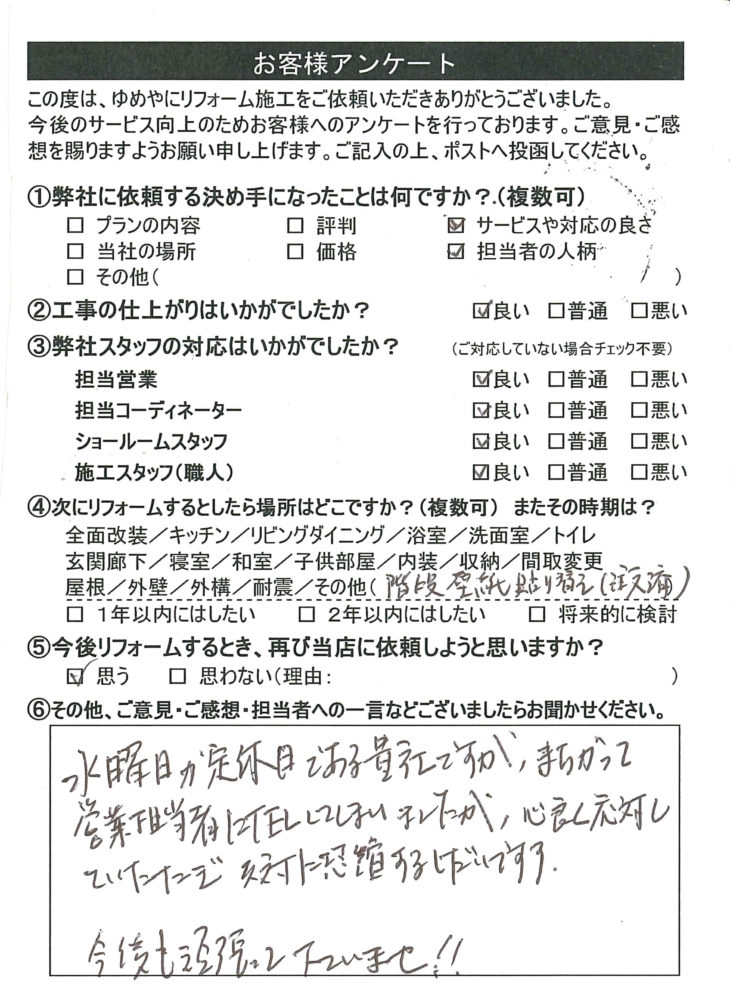 お客様アンケート
この度は、ゆめやにリフォーム施工をご依頼いただきありがとうございました。
今後のサービス向上のためお客様へのアンケートを行っております。ご意見・ご感
想を賜りますようお願い申し上げます。ご記入の上、ポストへ投函してください。
①弊社に依頼する決め手になったことは何ですか？.(複数可)
□ プランの内容 □ 評判 ☑ サービスや対応の良さ
□ 当社の場所 □ 価格 ☑ 担当者の人柄
□ その他( )
②工事の仕上がりはいかがでしたか？ ☑良い □普通 □悪い
③弊社スタッフの対応はいかがでしたか？ (ご対応していない場合チェック不要)
担当営業 ☑良い □普通 □悪い
担当コーディネーター ☑良い □普通 □悪い
ショールームスタッフ ☑良い □普通 □悪い
施工スタッフ(職人) ☑良い □普通 □悪い
④次にリフォームするとしたら場所はどこですか？(複数可) またその時期は？
全面改装／キッチン／リビングダイニング／浴室／洗面室／トイレ
玄関廊下／寝室／和室／子供部屋／内装／収納／間取変更
屋根／外壁／外構／耐震／その他( 階段壁紙貼り替え(注文済)
□ 1年以内にはしたい □ 2年以内にはしたい □ 将来的に検討
⑤今後リフォームするとき、再び当店に依頼しようと思いますか？
☑ 思う □ 思わない(理由: )
⑥その他、ご意見・ご感想・担当者への一言などございましたらお聞かせください。
水曜日が定休日である貴社ですが、まちがって
営業担当者にTELしてしまいましたが、心良く応対し
ていただき 恐縮するしだいです。
今後も頑張って下さいませ!!